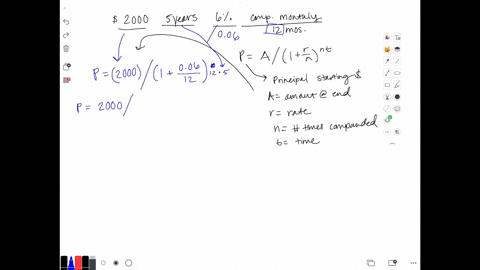 $ 2000 5 years 6% comp. monthly
0.06 12 mos.
P = A / (1 + r/n)^nt
P = (2000) / (1 + 0.06/12)^12·5
→ Principal starting $
P = 2000 /
A = amount @ end
r = rate
n = # times compounded
t = time